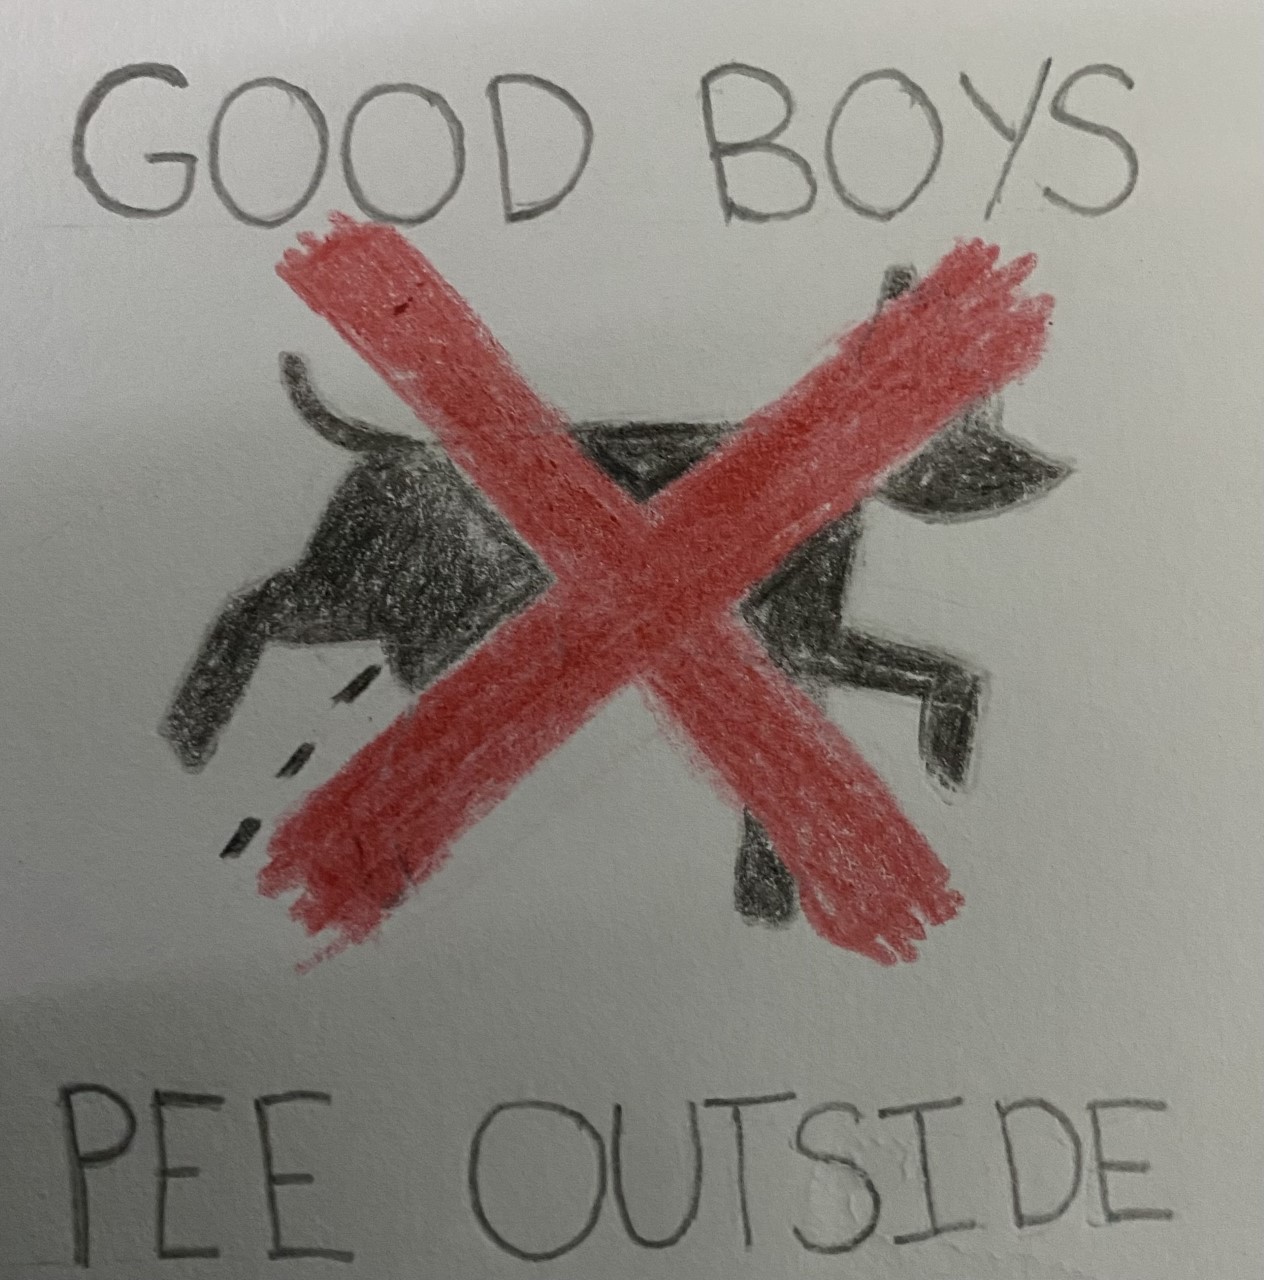 GOOD BOYS
PEE OUTSIDE